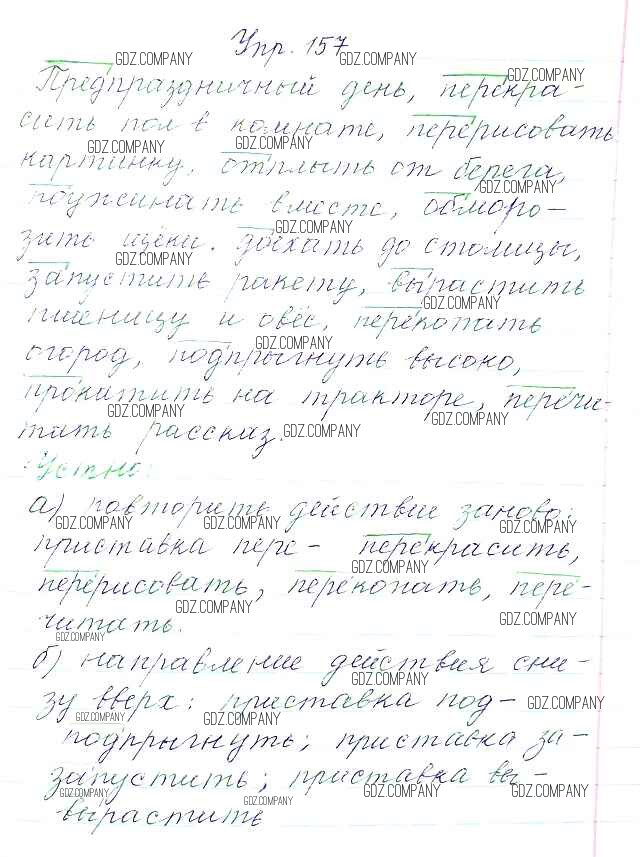 Упр. 157
Предпраздничный день, перекра-
сить пол в комнате, перерисовать
картинку, отплыть от берега,
поужинать вместе, обморо-
зить щёки. доехать до столицы,
запустить ракету, вырастить
пшеницу и овёс, перекопать
огород, подпрыгнуть высоко,
прокатить на тракторе, перечи-
тать рассказ.
Устно:
а) повторить действие заново:
приставка пере- перекрасить,
перерисовать, перекопать, пере-
читать.
б) направление действия сни-
зу вверх: приставка под-
подпрыгнуть; приставка за-
запустить; приставка вы-
вырастить
GDZ.COMPANY